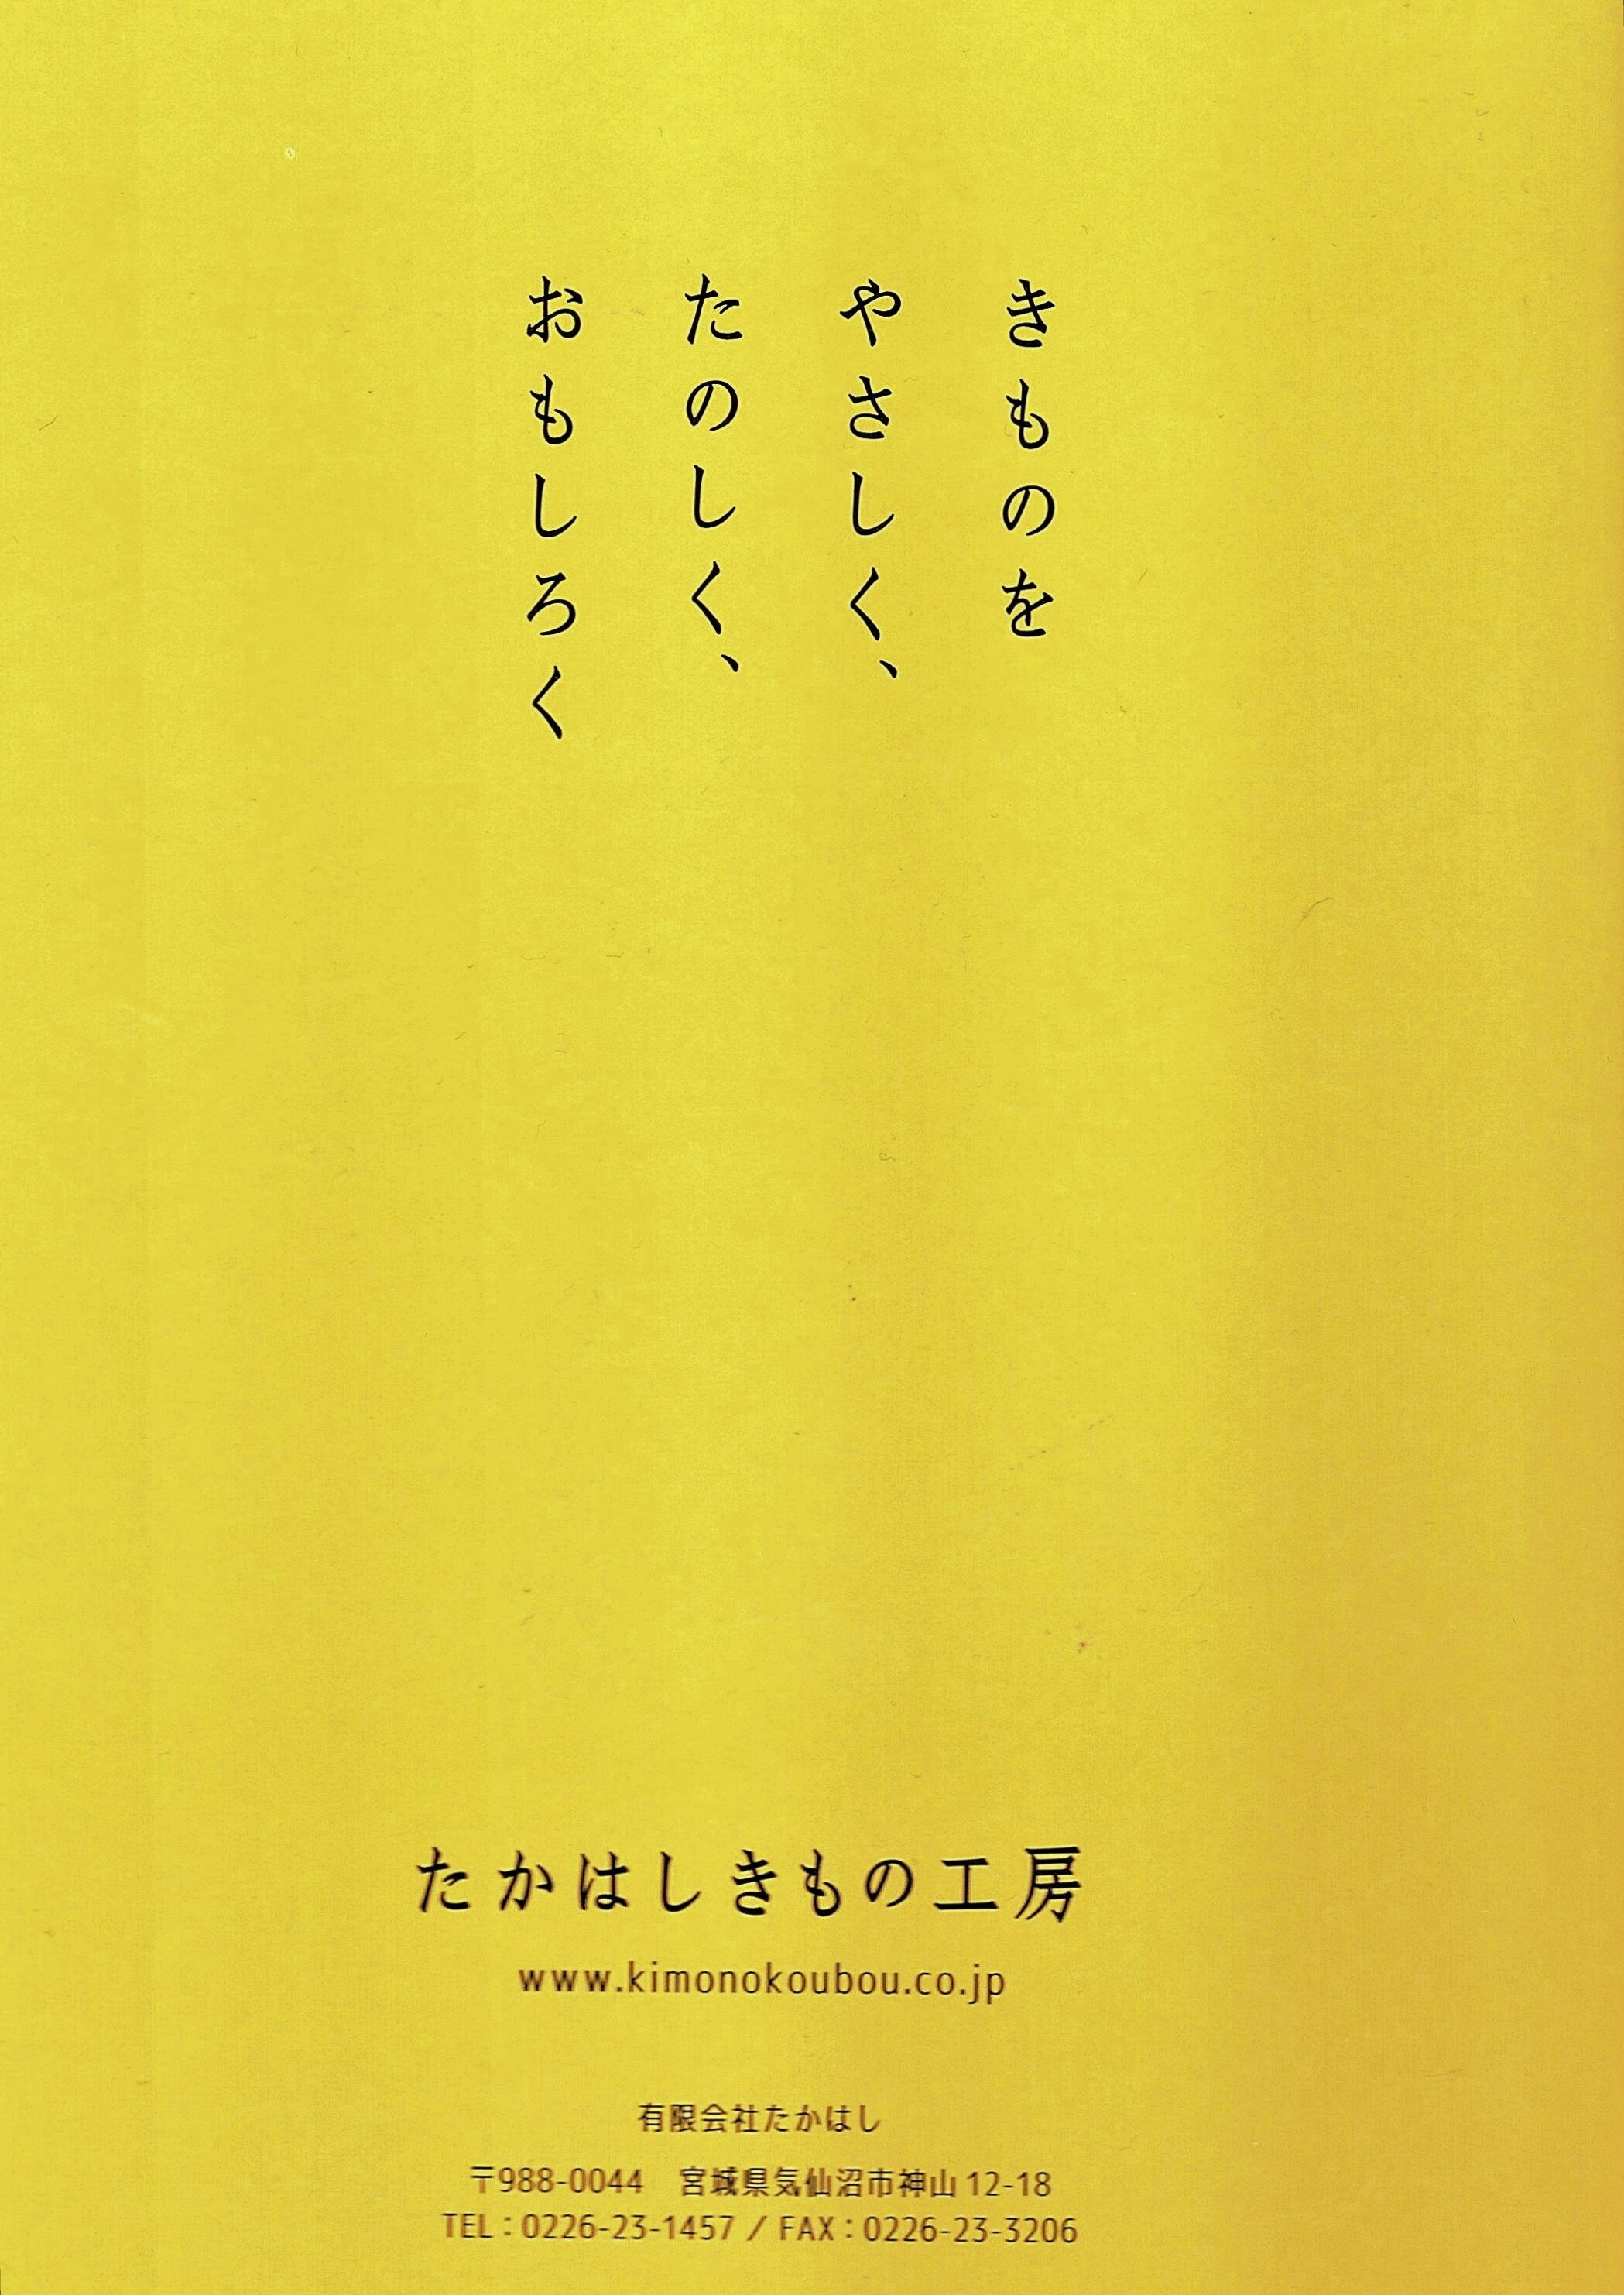 きものを
やさしく、
たのしく、
おもしろく
たかはしきもの工房
www.kimonokoubou.co.jp
有限会社たかはし
〒988-0044　宮城県気仙沼市神山 12-18
TEL：0226-23-1457 / FAX：0226-23-3206